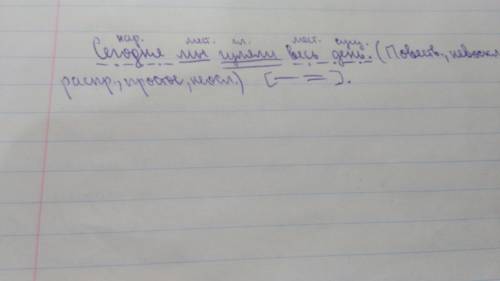 нар. мест. гл. мест. сущ.
Сегодня мы гуляли весь день. (Повеств., невоскл.,
распр., простое, неосл.) [— =].